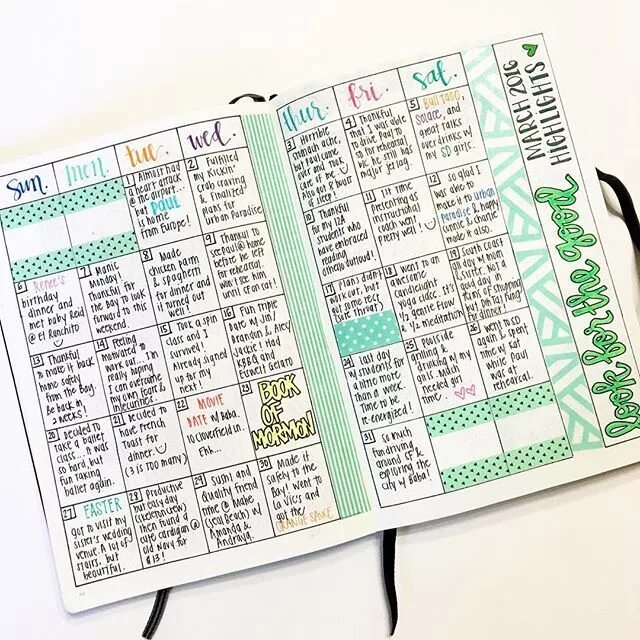 sun. mon. tue. wed.
1 Almost had
a heart attack
@ the airport...
but PAUL
is home
from Europe!
2 Fulfilled
my Kickin'
Crab craving
& Finalized
plans for
Urban Paradise
6 Renee's
birthday
dinner and
met baby Reid
@ El Ranchito
7 Manic
Monday.
Thankful for
the Bay to look
forward to this
weekend.
8 Made
chicken parm
& spaghetti
for dinner and
it turned out
well!
9 Thankful to
see Paul @ home
before he left
for rehearsal.
Won't see him
until Sf or cai!
13 Thankful
to make it back
home safely
from the Bay.
Be back in
2 weeks!
14 Feeling
motivated to
work out... I'm
really hoping I
can overcome
my own fears &
insecurities
15 Took a spin
class and I
survived.
Already signed
up for my
next!
16 Fun triple
date w/ Jin/
Brandon & Alex/
Jackie! Had
KBBQ and
Eiswelt Gelato
20 Decided to
take a ballet
class... It was
so hard, but
fun taking
ballet again.
21 Decided to
have French
toast for
dinner.
(3 is too many)
22 MOVIE
DATE w/ Baba.
10 Cloverfield Ln.
Fhk...
23 BOOK
OF
MORMON
27 EASTER
Got to visit my
sister's wedding
venue. A lot of
stairs, but
beautiful.
28 Productive
but easy day
then found a
cute cardigan @
Old Navy for
$13!
29 Sushi and
Quality friend
time @ Mahe
(Seal Beach) w/
Amanda &
Andraya.
30 Made it
safely to the
Bay, went to
La Vics and
got the
ORANGE SAUCE
thur. fri. sat.
3 Horrible
stomach ache,
but Paul came
over and took
care of me.
Also got 8 hours
of sleep!
4 Thankful
that I was able
to drive Baby to
SD for rehearsal
bc he still has
major jetlag
5 BULL TACO,
Solace, and
great talks
over drinks w/
my SD girls.
10 Thankful
for my TA
students who
have embraced
reading
Othello without!
11 1st time
presenting as
instructional
coach went
pretty well!
12 So glad I
was able to
make it to Urban
Paradise & happy
Connie & Charlie
made it also.
17 Plans didn't
work out, but
got some rest
(sore throat)
18 Went to an
awesome
candlelight
yoga class. It's
½ gentle flow
& ½ meditation
19 South Coast
all day w/ mom
& sister. Not a
good day in
spending, but
fun day of shopping
& dinner!
24 Last day
w/ students for
a little more
than a week.
Time to be
re-energized!
25 Poolside
grilling &
drinking w/ my
girls. Much
needed girl
time.
26 Went to SD
again & spent
time w/ Kat
while Paul
was at
rehearsal.
31 So much
fun driving
around SF &
exploring the
city w/ Baba!
MARCH 2016
HIGHLIGHTS
look for the good